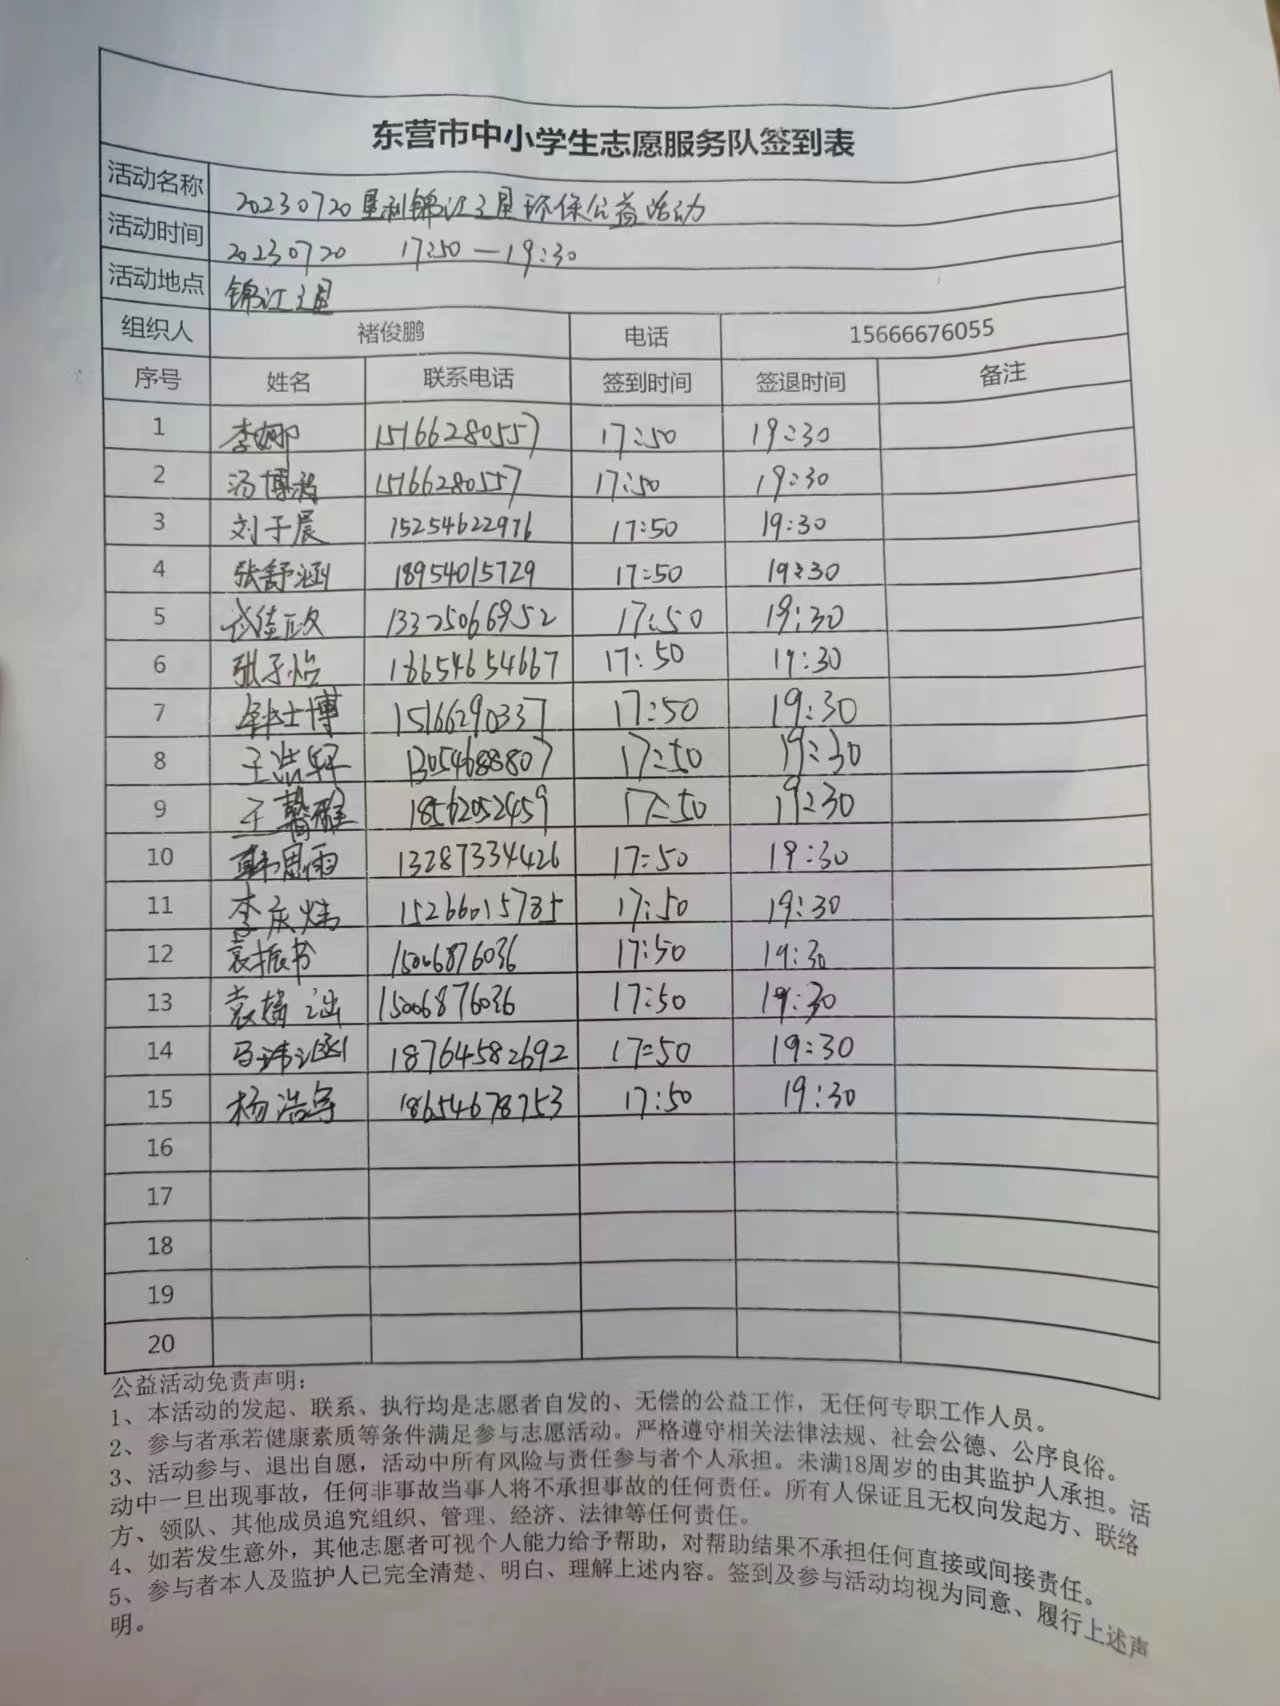 东营市中小学生志愿服务队签到表
活动名称 20230720垦利锦江之星环保公益活动
活动时间 20230720 17:50—19:30
活动地点 锦江之星
组织人 褚俊鹏 电话 15666676055
序号 姓名 联系电话 签到时间 签退时间 备注
1 李娜 15166280557 17:50 19:30
2 汤博 15166280557 17:50 19:30
3 刘于晨 15254622976 17:50 19:30
4 张舒涵 18954015729 17:50 19:30
5 武佳 13325066952 17:50 19:30
6 张子怡 18654654667 17:50 19:30
7 士博 15166290337 17:50 19:30
8 王浩轩 13054688807 17:50 19:30
9 王馨雅 18562052459 17:50 19:30
10 韩思雨 13287334426 17:50 19:30
11 李庆炜 15266015785 17:50 19:30
12 袁振书 15006876036 17:50 19:30
13 袁 15006876036 17:50 19:30
14 马沛涵 18764582692 17:50 19:30
15 杨浩宇 18654678753 17:50 19:30
16
17
18
19
20
公益活动免责声明：
1、本活动的发起、联系、执行均是志愿者自发的、无偿的公益工作，无任何专职工作人员。
2、参与者承若健康素质等条件满足参与志愿活动。严格遵守相关法律法规、社会公德、公序良俗。
3、活动参与、退出自愿，活动中所有风险与责任参与者个人承担。未满18周岁的由其监护人承担。活
动中一旦出现事故，任何非事故当事人将不承担事故的任何责任。所有人保证且无权向发起方、联络
方、领队、其他成员追究组织、管理、经济、法律等任何责任。
4、如若发生意外，其他志愿者可视个人能力给予帮助，对帮助结果不承担任何直接或间接责任。
5、参与者本人及监护人已完全清楚、明白、理解上述内容。签到及参与活动均视为同意、履行上述声
明。